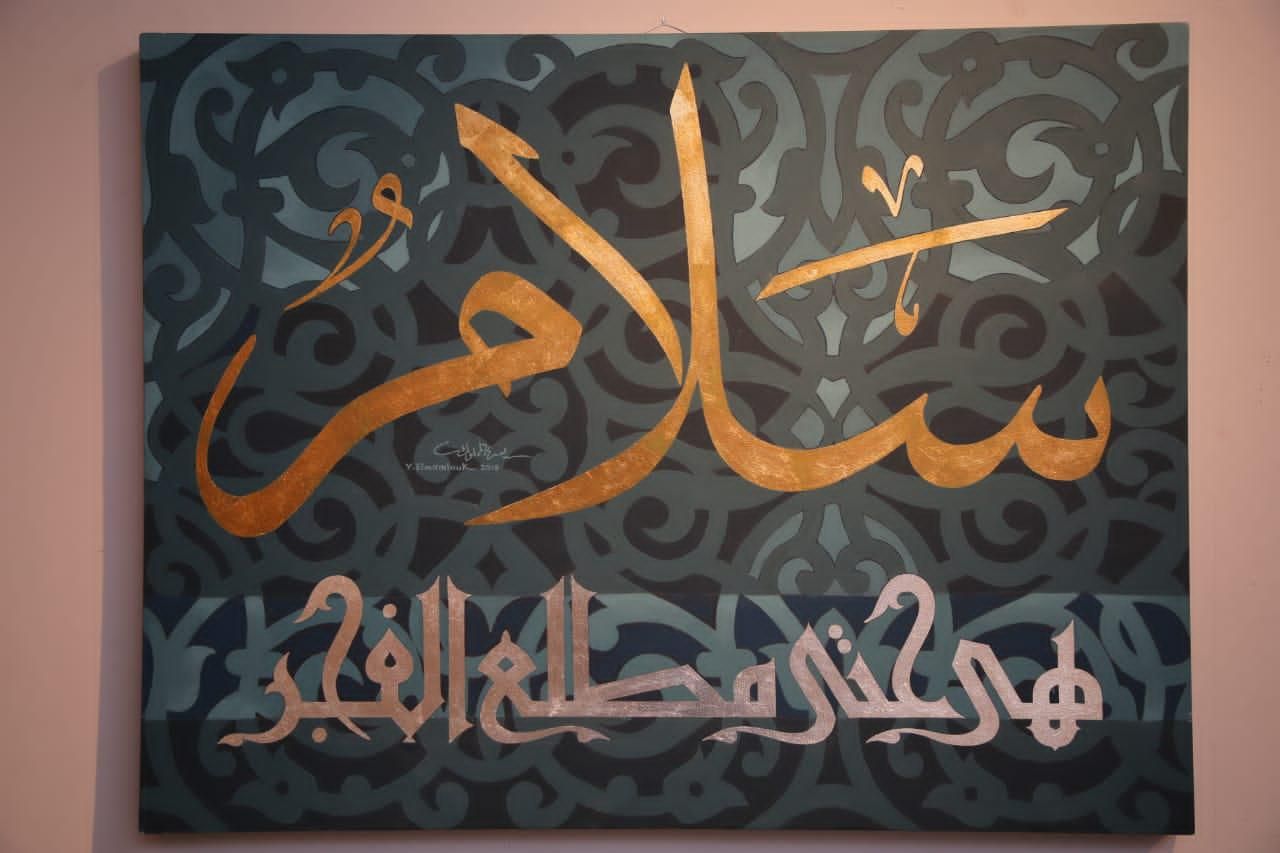 سَلَامٌ
هي حتى مطلع الفجر
Y.Elmamlouk 2018